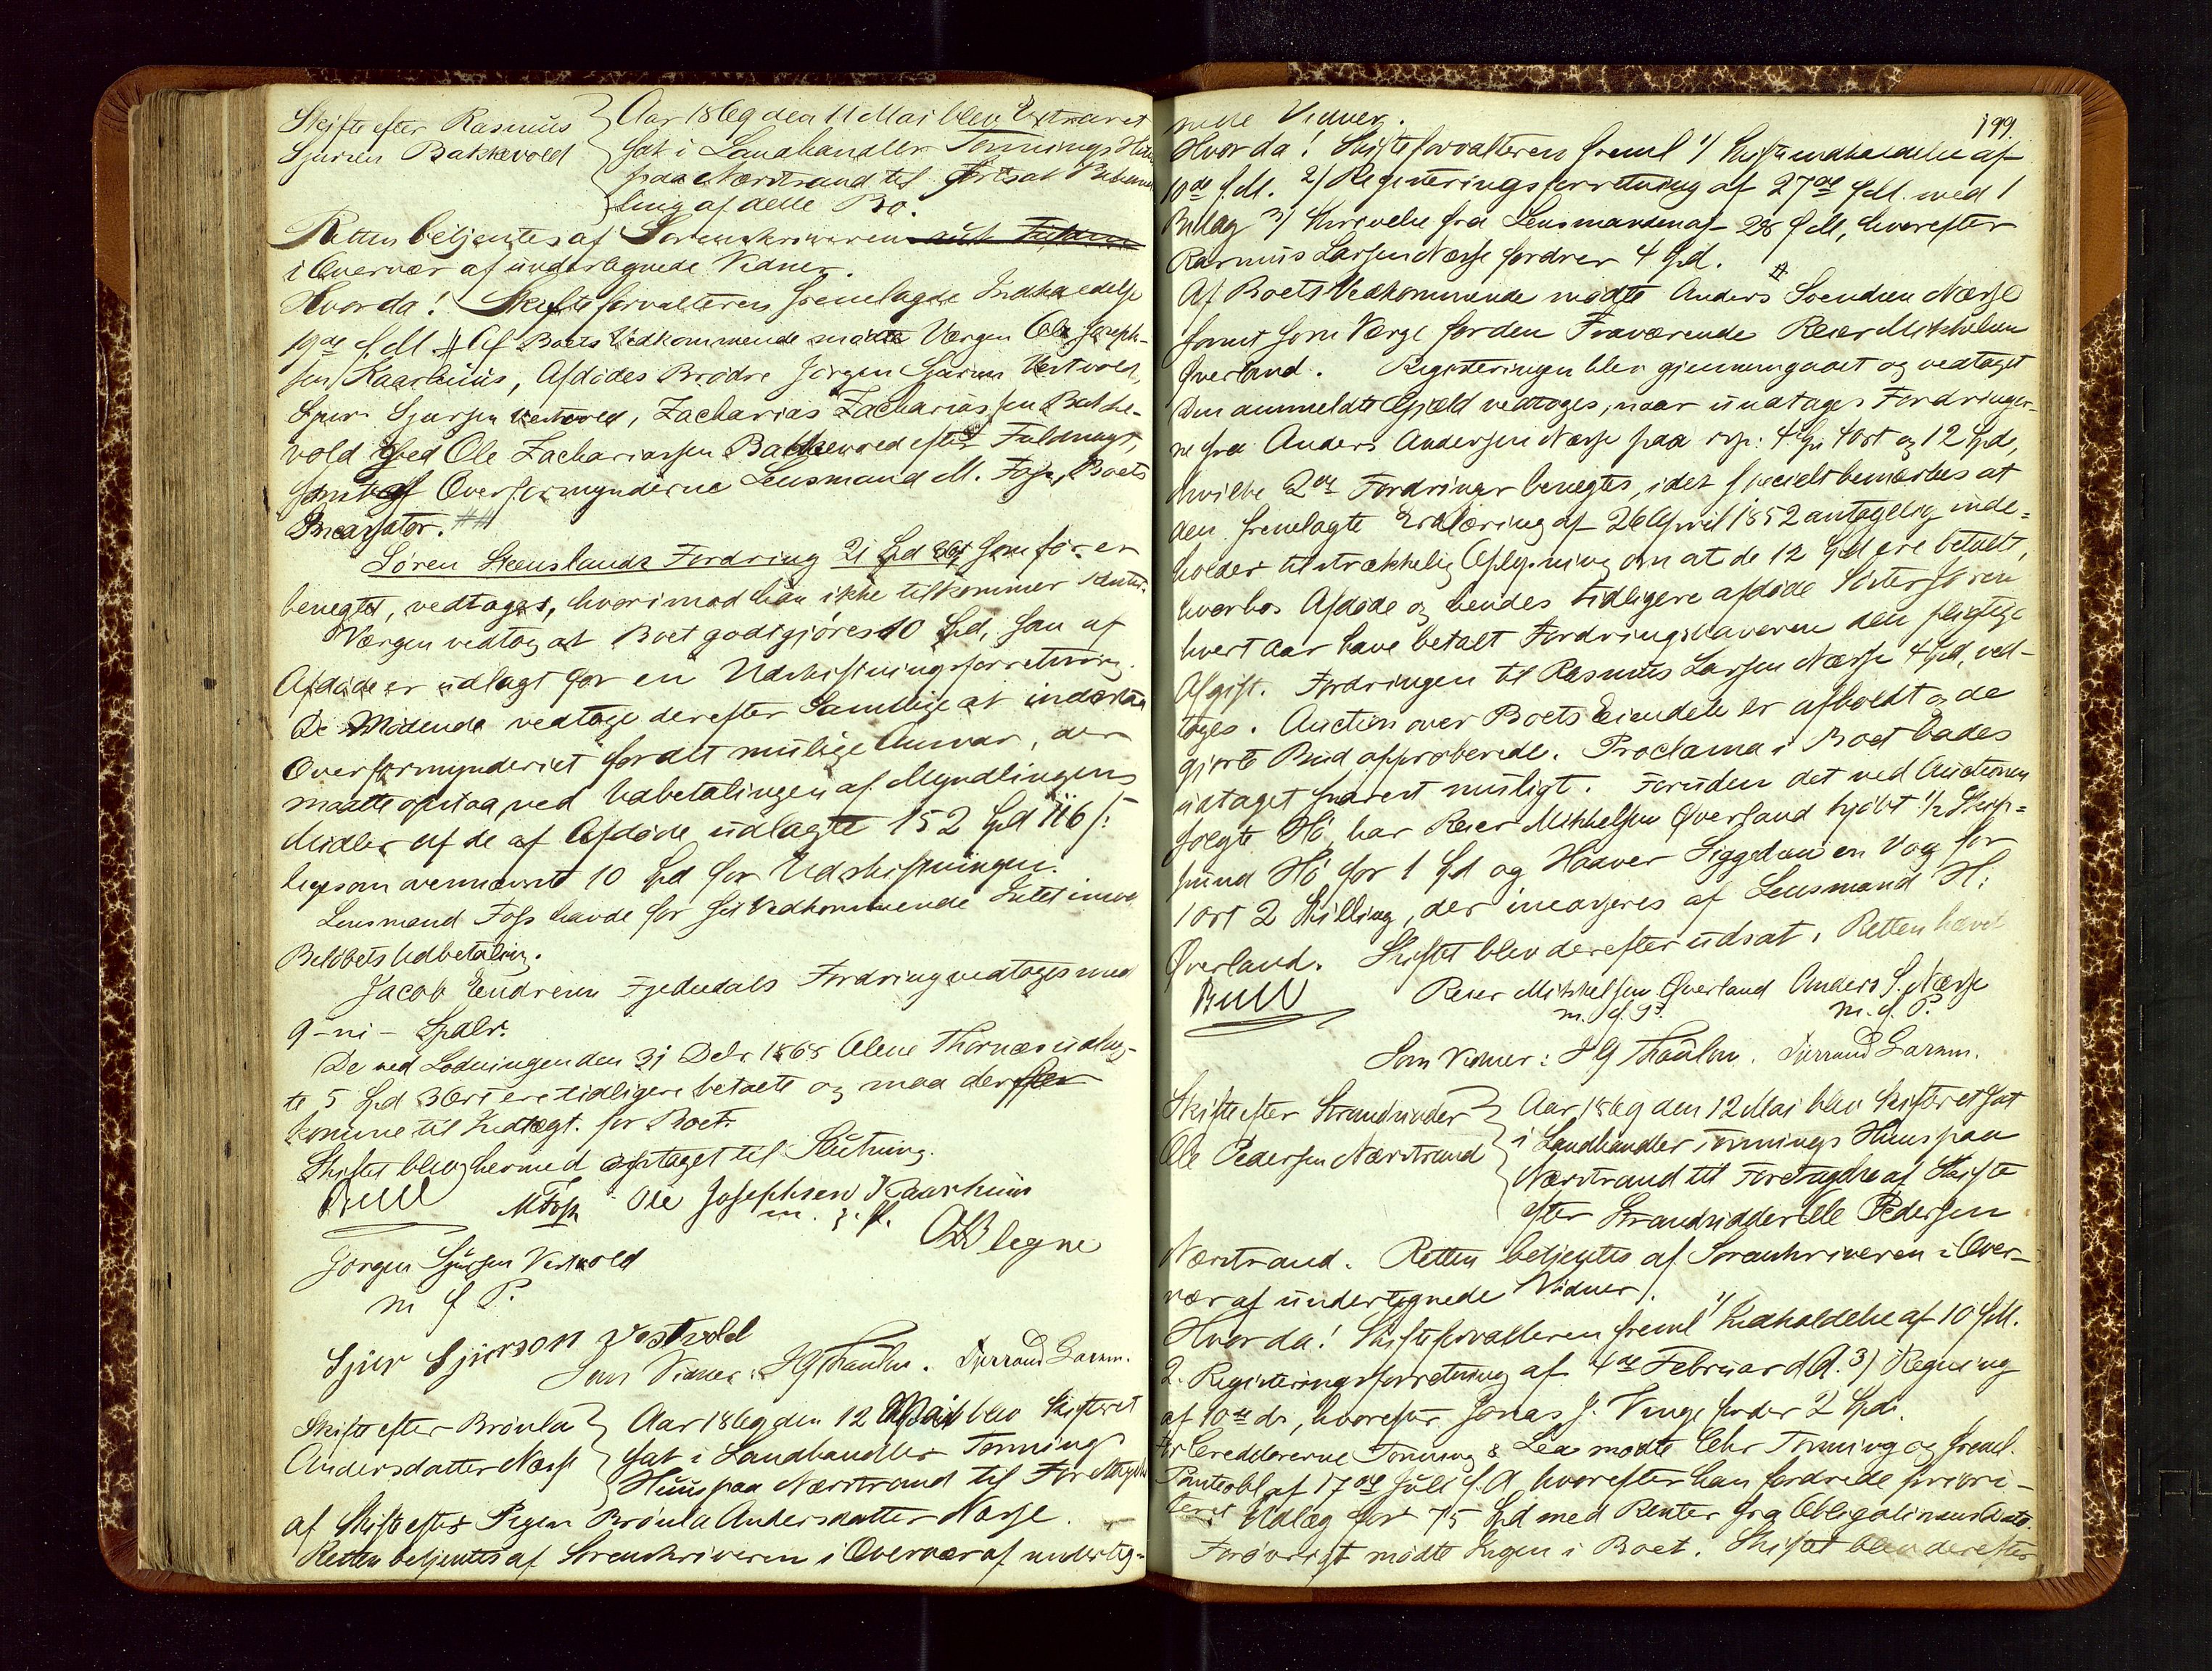 Skifte efter Rasmus
Sjursen Bakkevold
Aar 1869 den 11 Mai blev Extraret
sat i Landhandler Tønnings Huus
paa Nærstrand til fortsat Behand
ling af dette Bo.
Retten betjentes af Sorenskriveren
i Overvær af undertegnede Vidner.
Hvorda! Skifteforvalteren fremlagde Indkaldelse
19de f. M. # Af Boets Vedkommende mødte Værgen Ole Joseph-
sen Kaarhuus, Afdødes Brødre Jørgen Sjursen Vestvold,
Sjur Sjursen Vestvold, Zacharias Zachariassen Bakke-
vold ved Ole Zachariassen Bakkevold efter Fuldmagt,
samt af Overformynderne Lensmand M. Foss, Boets
Incassator. ##
Søren Steenslands Fordring 21 Spd som før er
benegtet, vedtages, hvorimod han ikke tilkommer Renter.
Værgen vedtog at Boet godtgjøres 10 Spd, som af
Afdøde er udlagt for en Udskiftningsforretning.
De Mødende vedtoge derefter samtlige at indestaa
Overformynderiet for det mulige Ansvar, der
maatte opstaa ved Udbetalingen af Myndlingens
Midler af de af Afdøde udlagte 152 Spd 116 s:
ligesom ovennævnte 10 Spd for Udskiftningen.
Lensmand Foss havde for sit Vedkommende Intet imod
Beløbets Udbetaling.
Jacob Endresen Fjeldedals Fordring vedtoges med
9 - ni - Spdlr.
De ved Lodningen den 31 Debr 1868 Olene Thornæs udlag-
te 5 Spd 3 Ort ere tidligere betalte og maa derfor
komme til Indtægt for Boet.
Skiftet blev hermed optaget til Slutning.
Bull MFoss Ole Josephsen Kaarhuus
m. f. P.
Jørgen Sjursen Vestvold
m f P.
Sjur Sjurson Vestvold
Som Vidner: J G Thaulow. Sjurrand Larsen.
Skifte efter Brønla
Andersdatter Næsse
Aar 1869 den 12 Mai blev Skifteret
sat i Landhandler Tønnings
Huus paa Nærstrand til Foretagelse
af Skifte efter Pigen Brønla Andersdatter Næsse.
Retten betjentes af Sorenskriveren i Overvær af underteg-
199.
nede Vidner.
Hvorda! Skifteforvalteren freml 1/ Skifteindkaldelse af
10de f. M. 2/ Registeringsforretning af 27de f. M. med 1
Bilag 3/ Skrivelse fra Lensmanden af 28 f M, hvorefter
Rasmus Larsen Næsse fordrer 4 Spd.
Af Boets Vedkommende mødte Anders # Svendsen Næsse
samt som Værge for den Fraværende Reier Mikkelsen
Øverland. Registeringen blev gjennemgaaet og vedtaget
Den anmeldte Gjæld vedtoges, naar undtages Fordringer-
ne fra Anders Andersen Næsse paa resp: 4 Spd 4 Ort og 12 Spd,
hvilke 2de Fordringer benegtes, idet specielt bemærkes at
den fremlagte Erklæring af 26 April 1852 antagelig inde-
holder tilstrækkelig Oplysning om at de 12 Spd ere betalt,
hvorhos Afdøde og hendes tidligere afdøde Søster Søren
hvert Aar have betalt Fordringshaveren den pligtige
Afgift. Fordringen til Rasmus Larsen Næsse 4 Spd, ved-
toges. Auction over Boets Eiendele er afholdt og de
gjorte Bud approberede. Proclama i Boet bades
udtaget snarest muligt. Foruden det ved Auctionen
solgte Hø, har Reier Mikkelsen Øverland kjøbt 1/2 Skip-
pund Hø for 1 Spd og Haaver Siggedan en Vog for
1 ort 2 Skilling, der incasseres af Lensmand H:
Øverland. Skiftet blev derefter udsat. Retten hævet
Bull Reier Mikkelsen Øverland Anders S. Næsse
m. f. P. m. f. P.
Som Vidner: J G Thaulow. Sjurrand Larsen.
Skifte efter Strandsidder
Ole Pedersen Nærstrand
Aar 1869 den 12 Mai blev Skifteret sat
i Landhandler Tønnings Huus paa
Nærstrand til Foretagelse af Skifte
efter Strandsidder Ole Pedersen
Nærstrand. Retten betjentes af Sorenskriveren i Over-
vær af undertegnede Vidner.
Hvorda! Skifteforvalteren freml 1/ Indkaldelse af 10 f M.
2. Registeringsforretning af 4de Februar d. A. 3/ Regning
af 10de ds, hvorefter Jonas J. Vinge fordrer 2 Spd.
For Creditorerne Tønning & Lea mødte Ehr Tønning og freml.
Panteobl af 17de Juli f. A hvorefter han fordrede priori-
teret Udlæg for 75 Spd med Renter fra Obligationens Dato.
Forøvrigt mødte Ingen i Boet. Skiftet blev derefter